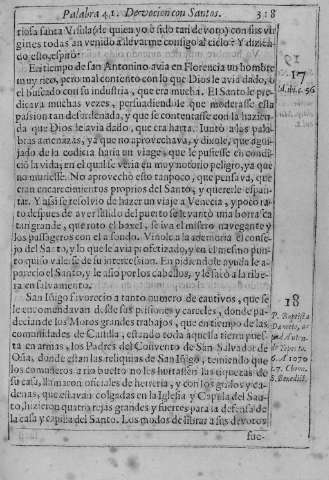 Palabra 41. Devocion con Santos. 318
riosa santa Ursula (de quien yo è sido tan devoto) con sus vir
gines todas an venido a llevarme consigo al cielo: Y dizien
do esto, espirò.
En tiempo de san Antonino avia en Florencia un hombre
muy rico, pero mal contento con lo que Dios le avia dado, o
el buscado con su industria, que era mucha. El Santo le pre
dicava muchas vezes, persuadiendole que moderasse esta
passion tan desordenada, y que se contentasse con la hazien
da que Dios le avia dado, que era harta. Juntò a las pala
bras amenazas, ya que no aprovechava, y dixole, que agui
jado de la codicia haria un viage, que le pusiesse en condi
cio la vida, en el qual se veria en muy notorio peligro, ya que
no muriesse. No aprovechò esto tampoco, que pensava, que
eran encarecimientos proprios del Santo, y quererle espan
tar. Y assi se resolvio de hazer un viaje a Venecia, y poco ra
to despues de aver salido del puerto se levantò una borrasca
tan grande, que roto el baxel, se iva el misero navegante y
los passageros con el a fondo. Vinole a la memoria el conse
jo del Santo, y lo que le avia profetizado, y en el mesmo pun
to quiso valerse de su intercession. En pidiendole ayuda le a-
parecio el Santo, y le asio por los cabellos, y le sacò a la ribe
ra en salvamento.
17
San Iñigo favorecio a tanto numero de cautivos, que se
le encomendavan desde sus prisiones y carceles, donde pa
decian de los Moros grandes trabajos, que en tiempo de las
comunidades de Castilla, estando toda aquella tierra pues
ta en armas, los Padres del Convento de San Salvador de
Oña, donde estan las reliquias de San Iñigo, temiendo que
los comuneros a rio buelto no les hurtassen las riquezas de
su casa, llamaron oficiales de herreria, y con los grillos y ca
denas, que estavan colgadas en la Iglesia y Capilla del San
to, hizieron quatro rejas grandes y fuertes para la defensa de
la casa y capilla del Santo. Los modos de librar a sus devotos
18
P. Baptista
1070
S. Benedict.
fue-